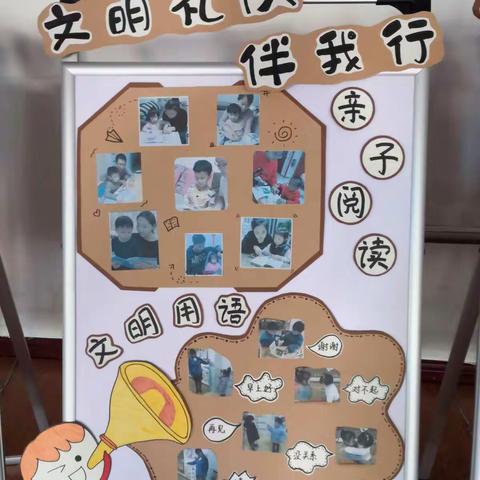 文明礼仪
伴我行
亲子阅读
文明用语
谢谢
早上好
对不起
再见
没关系